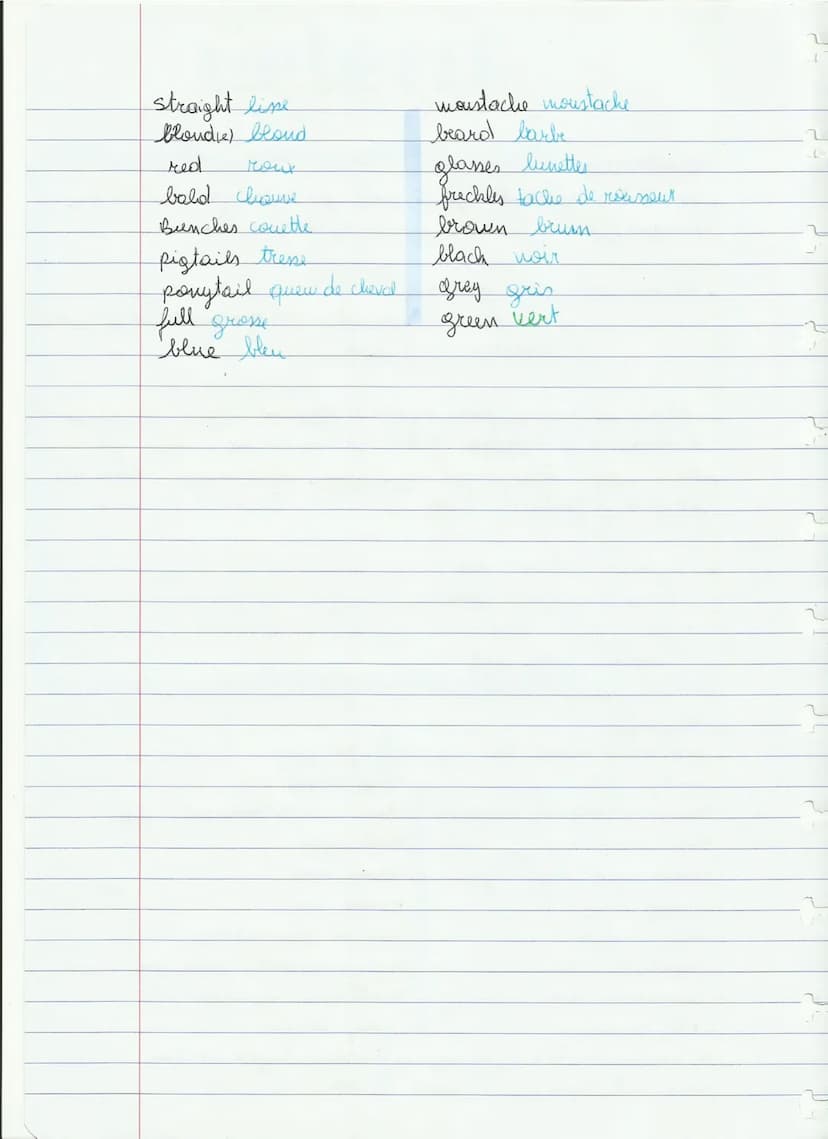 straight lisse
blond(e) blond
red roux
bald chauve
Bunches couette
pigtails tresse
ponytail queu de cheval
full grosse
blue bleu
moustache moustache
beard barbe
glasses lunettes
freckles tache de rousseur
brown brun
black noir
grey gris
green vert